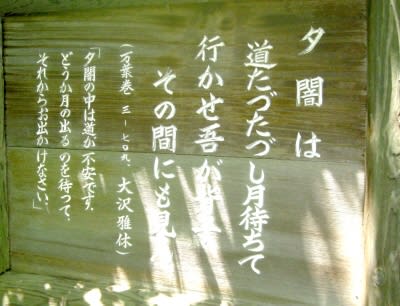 夕闇は
道たづたづし月待ちて
行かせ吾が
その間にも見
(万葉巻 三-七〇九、大沢雅休)
「夕闇の中は道が不安です.
どうか月の出るのを待つて、
それからお出かけなさい.」